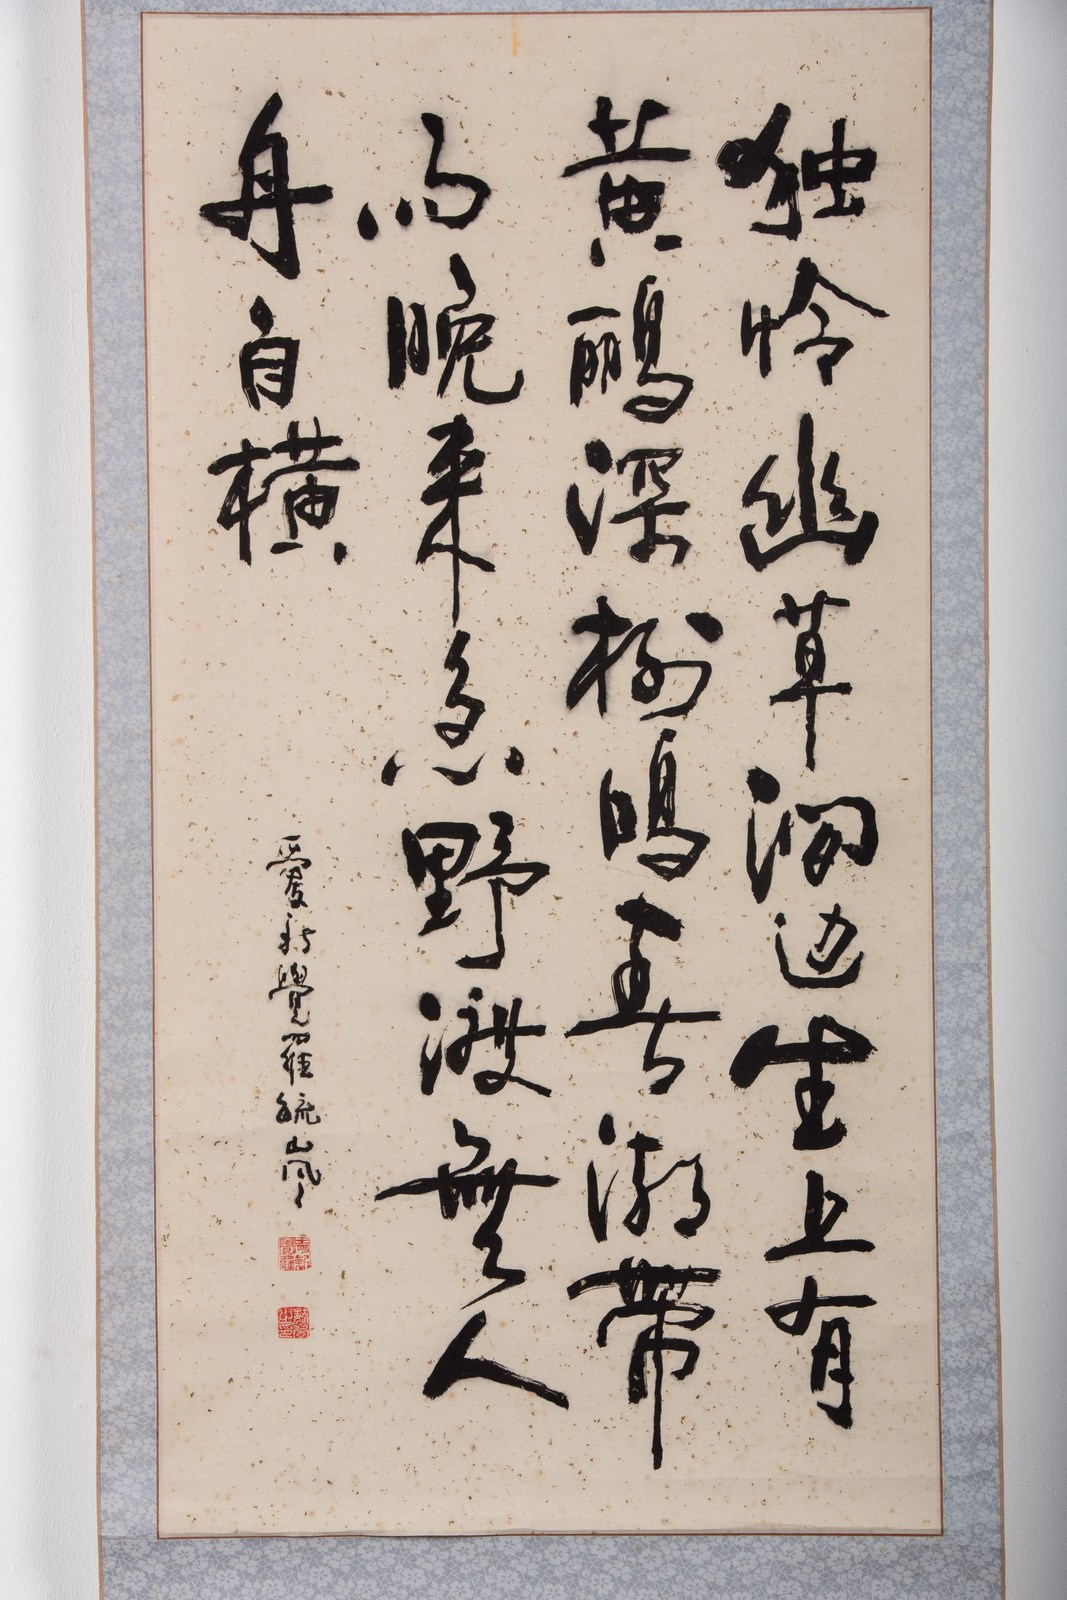 独怜幽草涧边生上有
黄鹂深树鸣春潮帶
雨晚来急野渡無人
舟自横
愛新覺羅毓岚